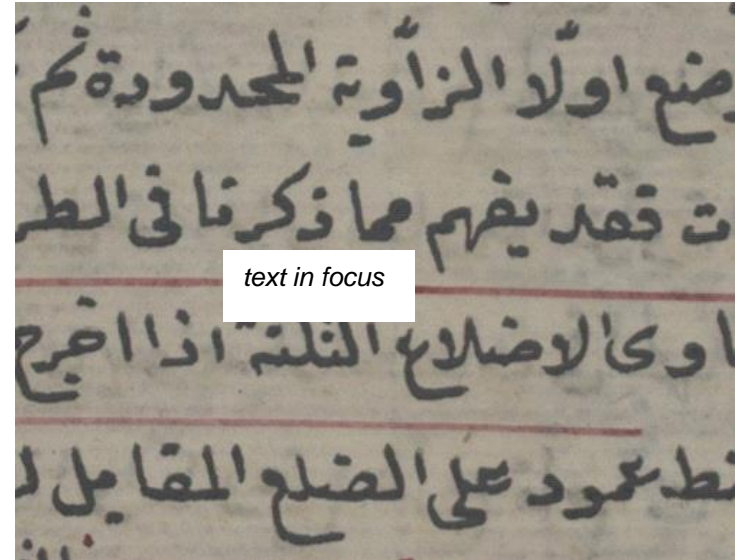 وضع اولا الزاوية المحدودة ثم
ت فقد يفهم مما ذكرنا فى الطر
text in focus
اوى الاضلاع الثلثة اذا اخرج
عمود على الضلع المقابل